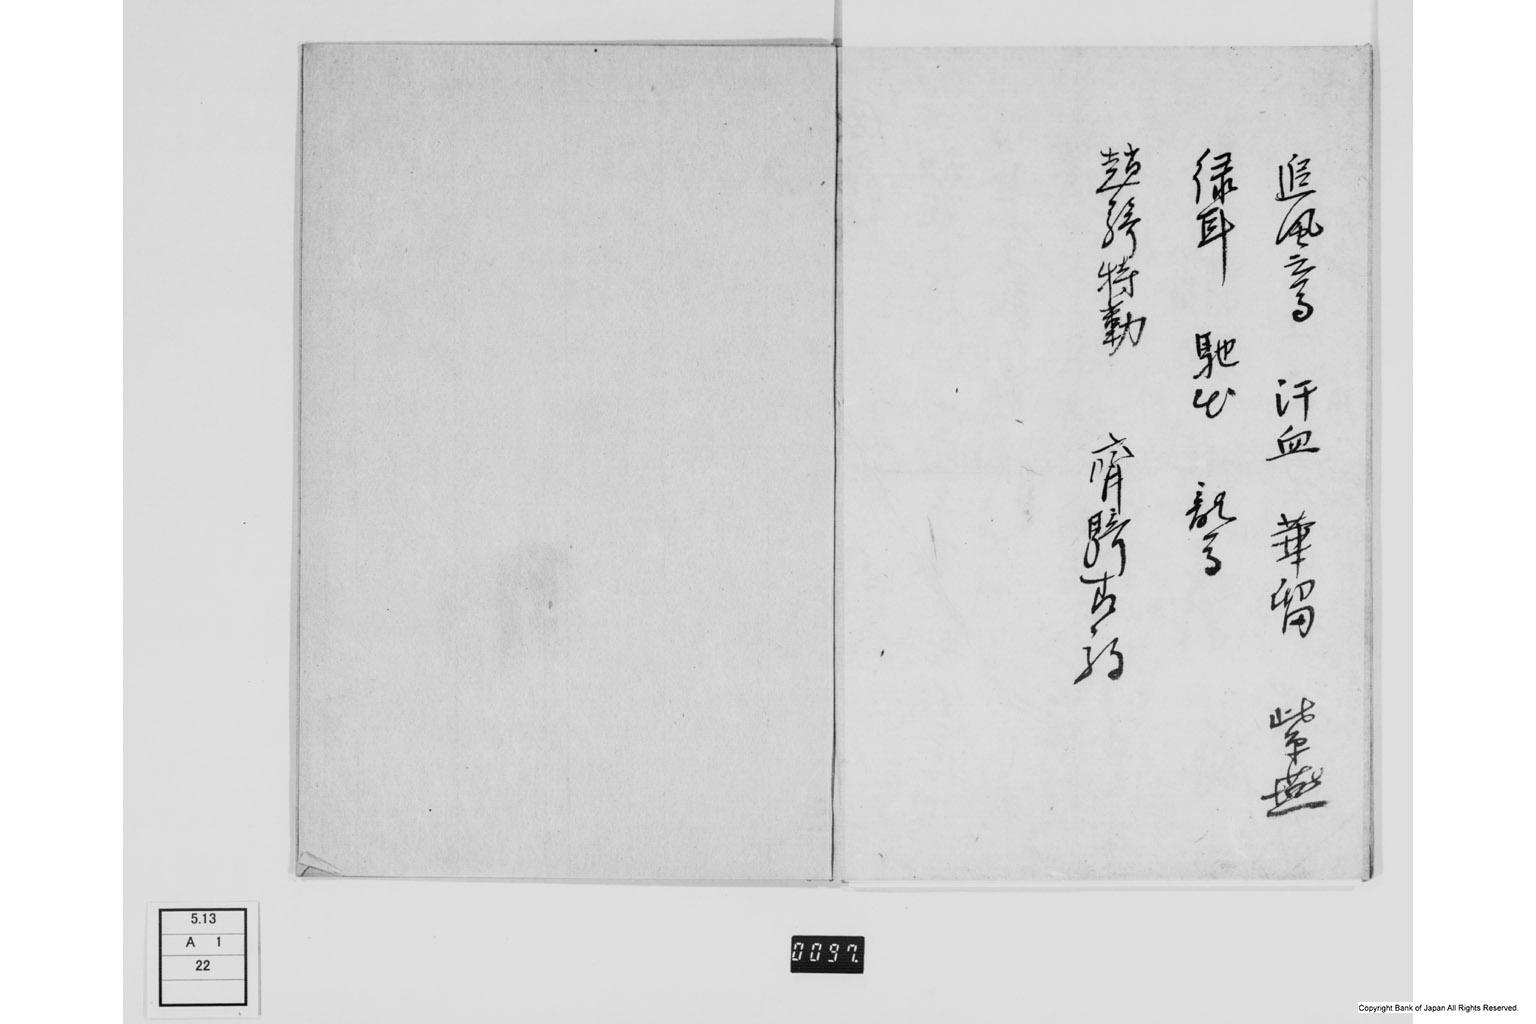 追風高 汗血 華留 紫燕
緑耳 馳出
趙騎特勒 齊騎
5.13
A 1
22
0097.
Copyright Bank of Japan All Rights Reserved.